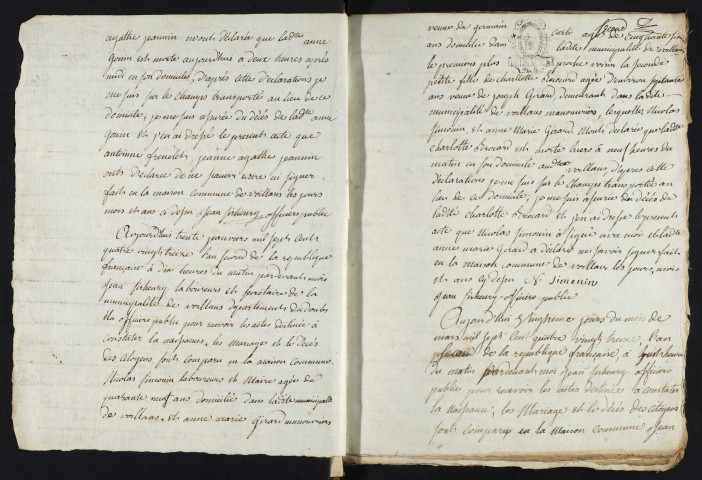 agathe jeannin m'ont déclarée que ladte anne
Gouin est morte aujourd'huis à deux heures après
midi en son domicile, d'après cette déclarations je
me suis sur le champs transporté au lieu de ce
domicile, je me suis assurée du décès de ladte anne
Gouin et j'en ai drefsé le present acte que
antoinne frenelet, jeanne agathe jeannin
ont déclarée de ne sauoir écrire ni signer
fait en la maison commune de voillans les jours
mois et ans ci defsus Jean officiers public
Aujourd'huis trente januiers mil sept cent
quatre vingt treize l'an second de la republique
française à dix heures du matin pardeuant mois
Jean laboureurs et secrétaire de la
municipalité de voillans departement du doubs
élu officiers public pour recevoir les actes destinée à
constater la naifsance, les mariages et le décès
des citoyens sont comparu en la maison commune
Nicolas Simonin laboureurs et Maire agée de
quarante neuf ans domicilié dans ladte municipalité
de voillans, et anne marie Girard manouuriers
second
veuue de germain agée de cinquante
ans domicilié dans ladite municipalité de voillans
le premiers plus proche voisin la seconde
petite fille de charlotte Drouard agée d'environ septante
ans veuue de joseph Girard, demeurant dans ladte
municipalité de voillans manouuriers, lesquelles Nicolas
Simonin et anne Marie Girard M'ont déclarée que ladte
charlotte Drouard est morte hiers à neuf heures du
matin en son domicile audt voillans, d'apres cette
déclarations je me suis sur le champs transporté au
lieu de ce domicile; je me suis assurée du décès de
ladte charlotte Drouard et j'en ai drefsé le present
acte que Nicolas Simonin à signée avec moi et ladte
anne marie Girard a déclaré ne savoir signer fait
en la Maison commune de voillans les jours, mois
et ans cy defsus N. Simonin
Jean officiers public
Aujourd'hui jours du mois de
mars mil sept Cent quatre vingt treize, l'an
second de la republique française, à heures
du matin pardeuant moi Jean officiers
public pour recevoir les actes destinée à constater
la Naifsance, les Mariage et le décès des citoyens
sont comparu en la Maison commune Jean